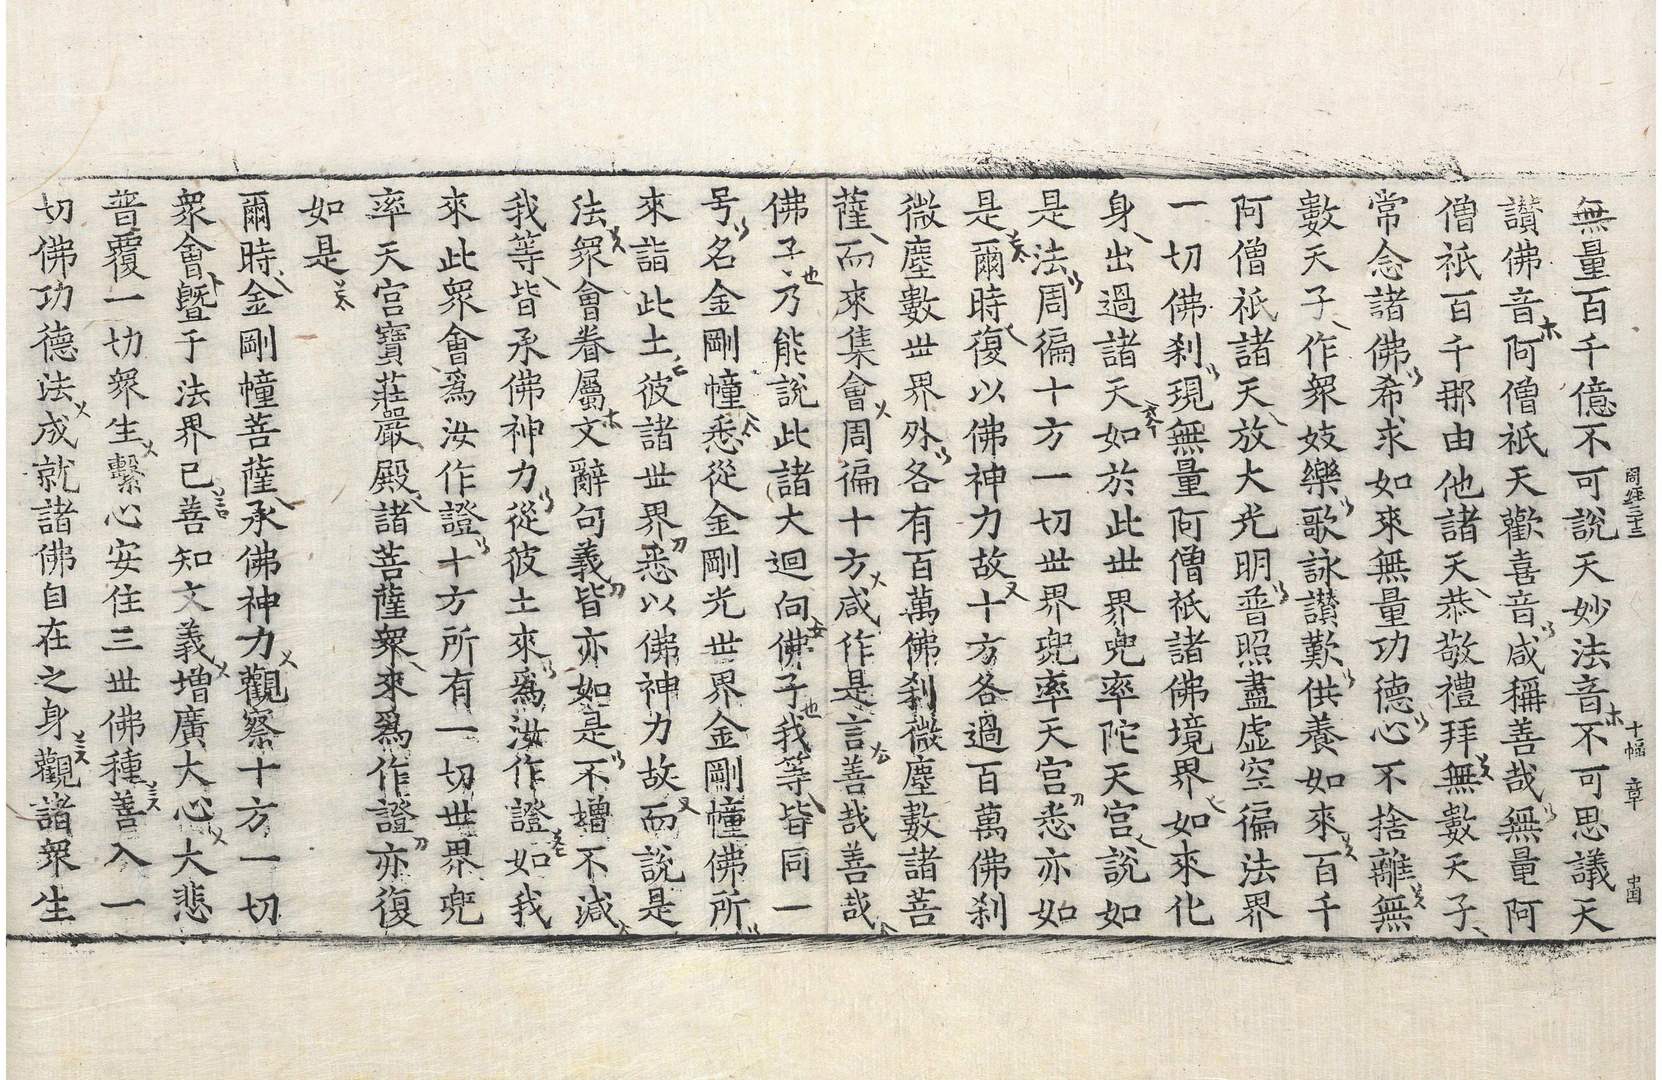 周經三十三 十幅 章 中国
無量百千億不可說天妙法音不可思議天
讃佛音阿僧祇天歡喜音咸稱善哉無量阿
僧祇百千那由他諸天恭敬禮拜無數天子
常念諸佛希求如來無量功德心不捨離無
數天子作衆妓樂歌詠讃歎供養如來百千
阿僧祇諸天放大光明普照盡虛空徧法界
一切佛刹現無量阿僧祇諸佛境界如來化
身出過諸天如於此世界兜率陀天宮說如
是法周徧十方一切世界兜率天宮悉亦如
是爾時復以佛神力故十方各過百萬佛刹
微塵數世界外各有百萬佛刹微塵數諸菩
薩而來集會周徧十方咸作是言善哉善哉
佛子乃能說此諸大迴向佛子我等皆同一
号名金剛幢悉從金剛光世界金剛幢佛所
來詣此土彼諸世界悉以佛神力故而說是
法衆會眷屬文辭句義皆亦如是不增不減
我等皆承佛神力從彼土來爲汝作證如我
來此衆會爲汝作證十方所有一切世界兜
率天宮寶莊嚴殿諸菩薩衆來爲作證亦復
如是
爾時金剛幢菩薩承佛神力觀察十方一切
衆會曁于法界已善知文義增廣大心大悲
普覆一切衆生繫心安住三世佛種善入一
切佛功德法成就諸佛自在之身觀諸衆生